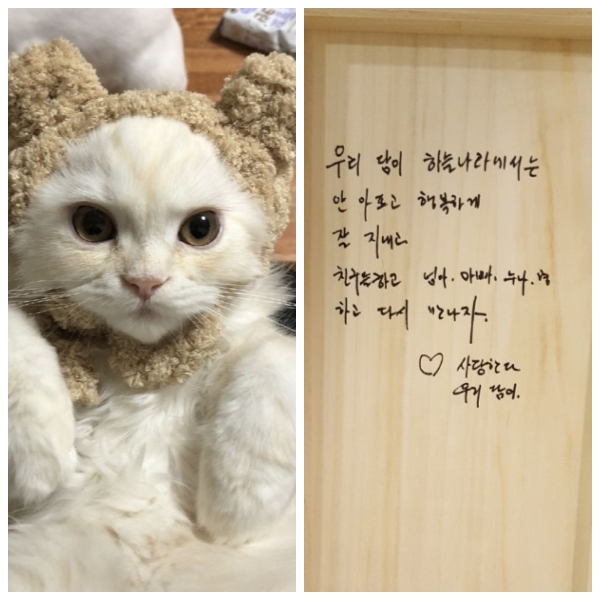 우리 담이 하늘나라에서는
안 아프고 행복하게
잘 지내고
친구들하고 엄마. 아빠. 누나.
하고 다시 만나자.
♡ 사랑한다
우리 담이.